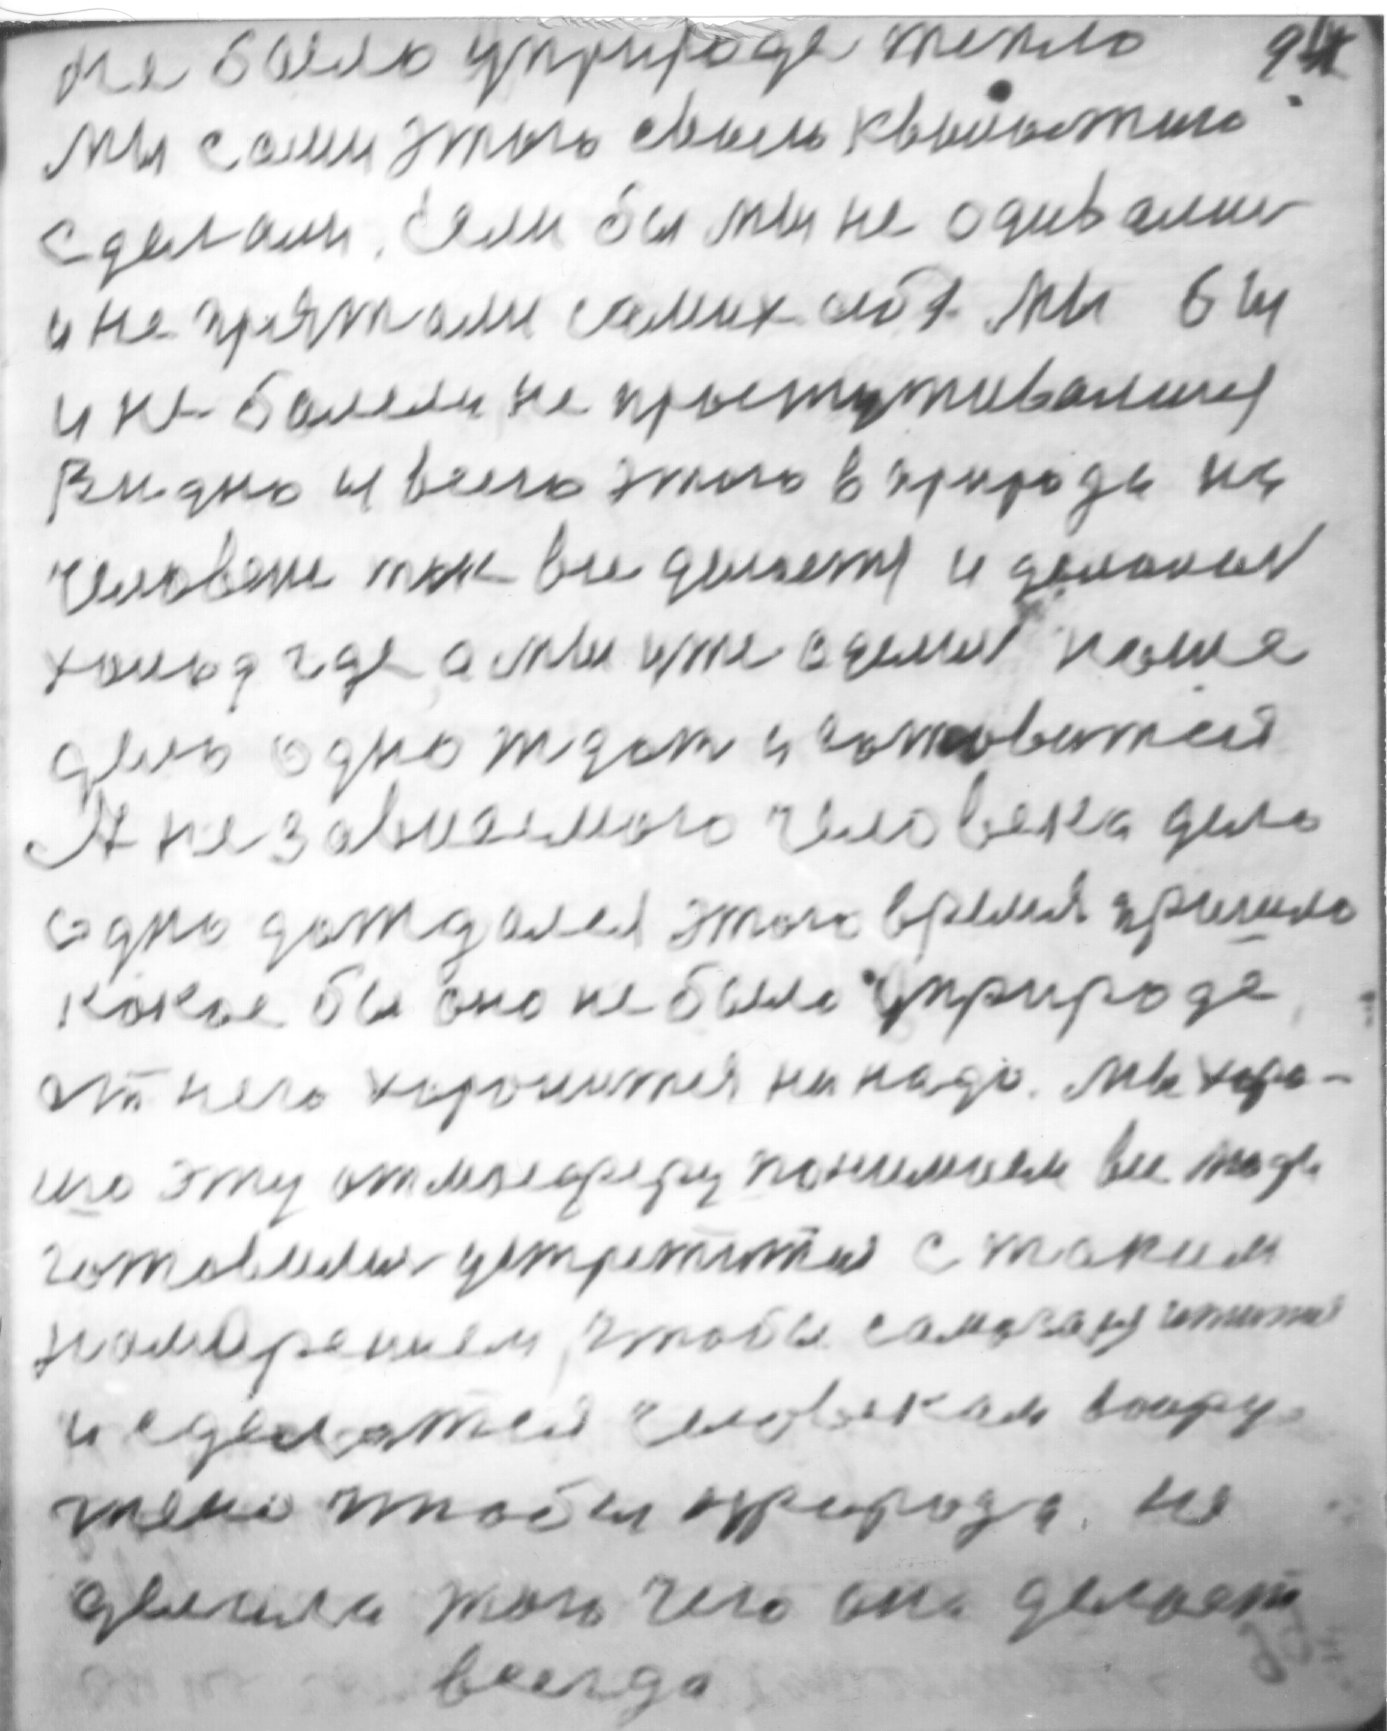 не было уприроде тепло 94
Мы сами этого своего
сделали. Если бы мы не одивались
и не прятали самих себя мы бы
и не болели, не простуживались
Видно и всего этого в природе на
человеке так все делается и делалося
холод где, а мы уже одели наше
дело одно ждать и готовится
А не зависемого человека дело
одно дождался этого время пришло
какое бы оно не было уприроде
от него хоронится не надо. Мы хоро-
шо эту атмосферу понимаем все люди
готовились устретится с таким
намерением, чтобы
и сделатся человекам воору-
жено чтобы природа не
делала того чего она делает
всегда